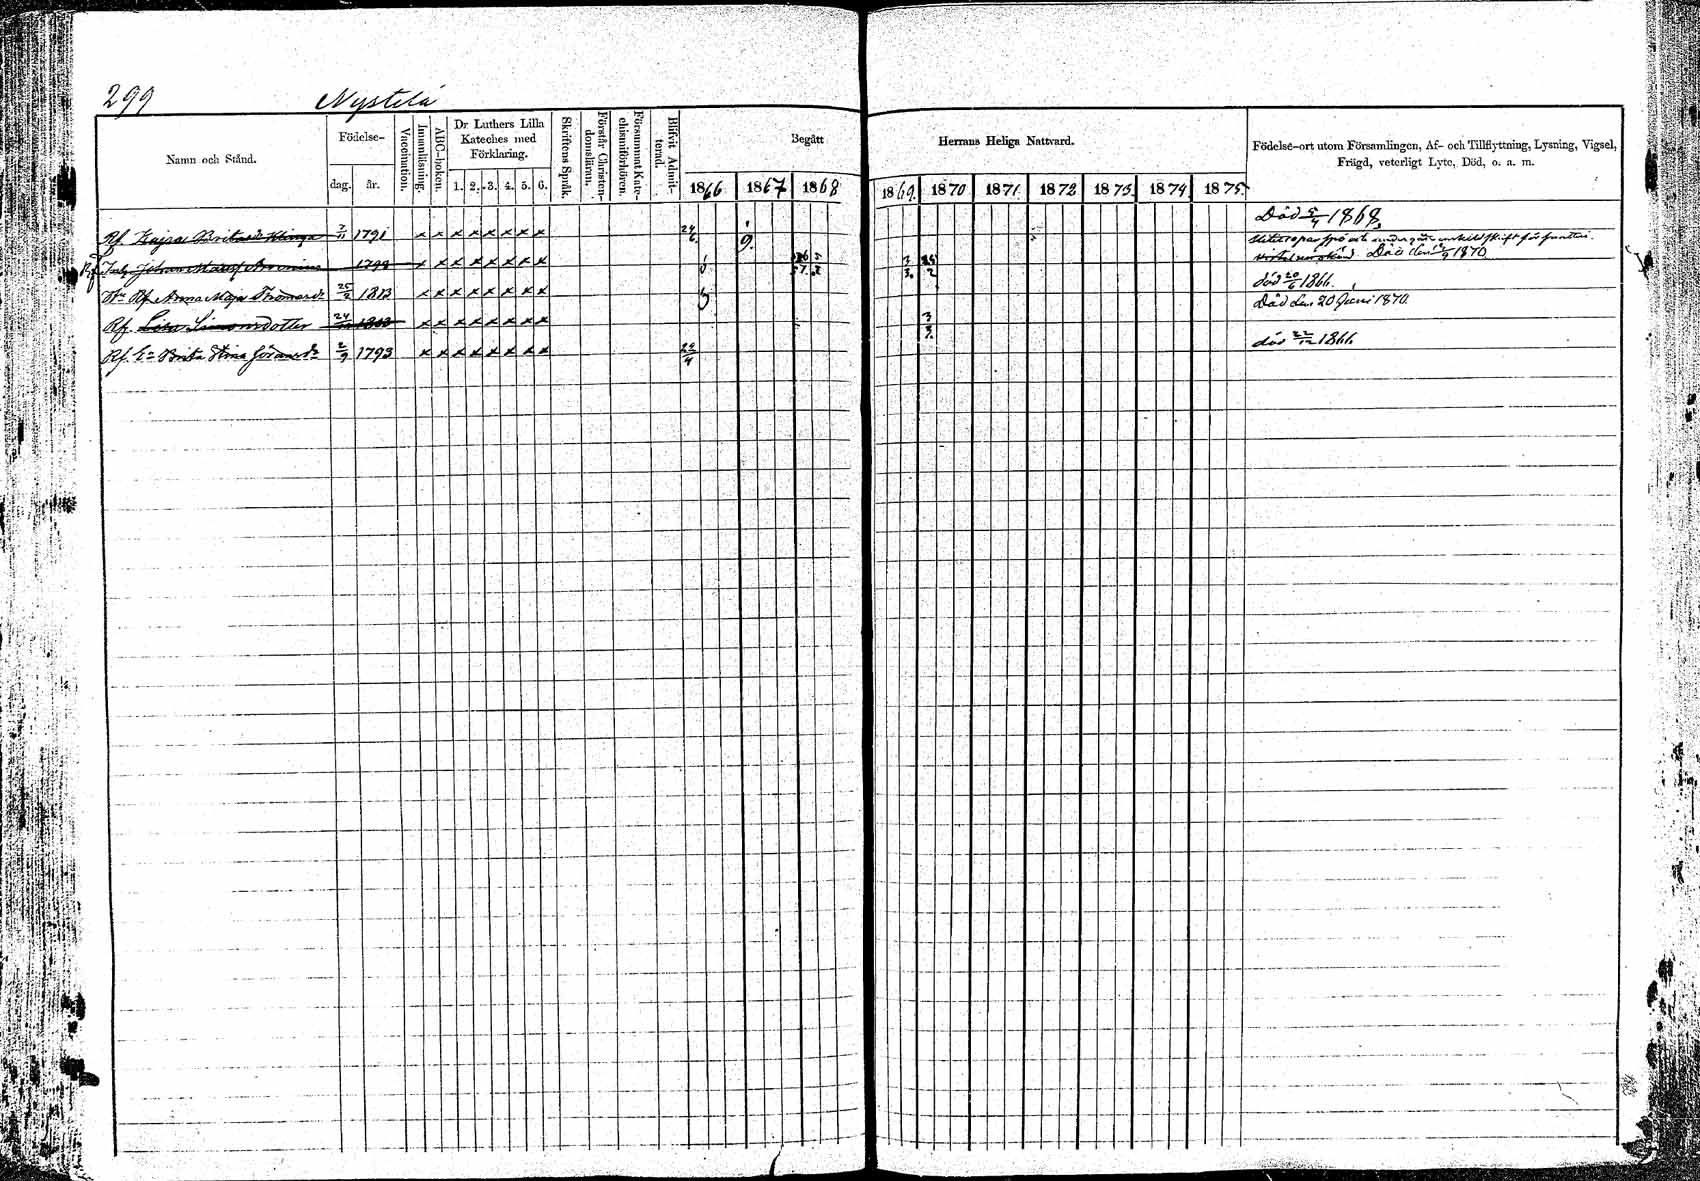 299 Nystelä
Namn och Stånd.
Födelse-
dag. år.
Vaccination.
Innanläsning.
ABC-boken.
Dr Luthers Lilla Kateches med Förklaring.
1. 2. 3. 4. 5. 6.
Skriftens Språk.
Förstår Christendomsläran.
Försummat Katechismiförhören.
Blifvit Admitterad.
Begått Herrans Heliga Nattvard.
1866 1867 1868 1869. 1870 1871. 1872 1873. 1874. 1875.
Födelse-ort utom Församlingen, Af- och Tillflyttning, Lysning, Vigsel, Frägd, veterligt Lyte, Död, o. a. m.
Rf. Kajsa 3/11 1791 x x x x x x x x 24/6 9. Död 5/4 1868.
Johan 1798 x x x x x x x x Död den 1870
Rf. Anna Maja 25/2 1813 x x x x x x x x död 20/6 1866.
Rf. Lisa Simonsdotter 24 1803 x x x x x x x x Död den 20 Juni 1870.
Rf. Brita Stina 2/9 1793 x x x x x x x x 22/4 död 22/12 1866